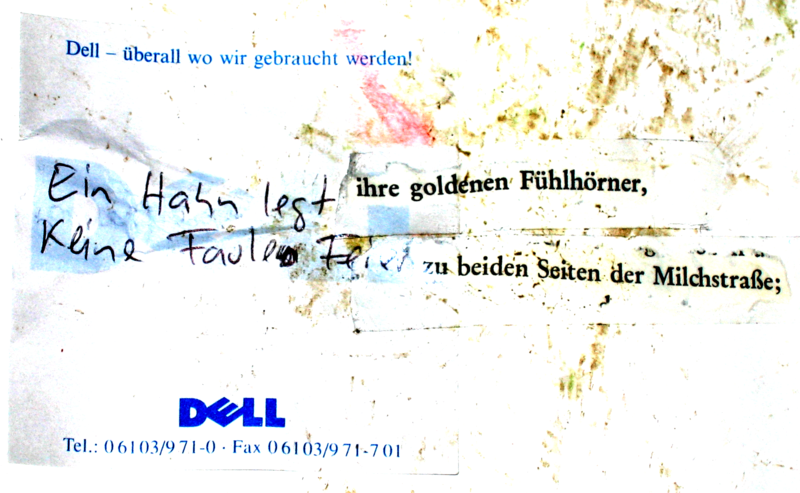 Dell – überall wo wir gebraucht werden!
Ein Hahn legt ihre goldenen Fühlhörner,
Keine Faule zu beiden Seiten der Milchstraße;
DELL
Tel.: 06103/971-0 · Fax 06103/971-701